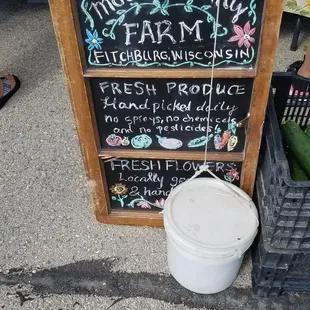 FARM
FITCHBURG, WISCONSIN
FRESH PRODUCE
Handpicked daily
no sprays, no chemicals
and no pesticides
FRESH FLOWERS
Locally
& hand